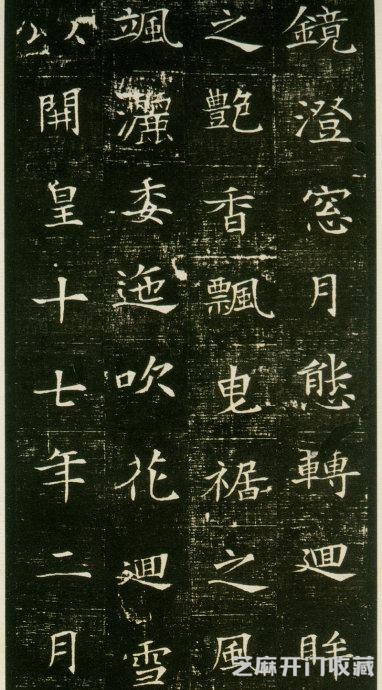 鏡澄窓月態轉迴眸
之艷香飄曳裾之風
颯灑委迤吹花迴雪
以開皇十七年二月
芝麻开门收藏